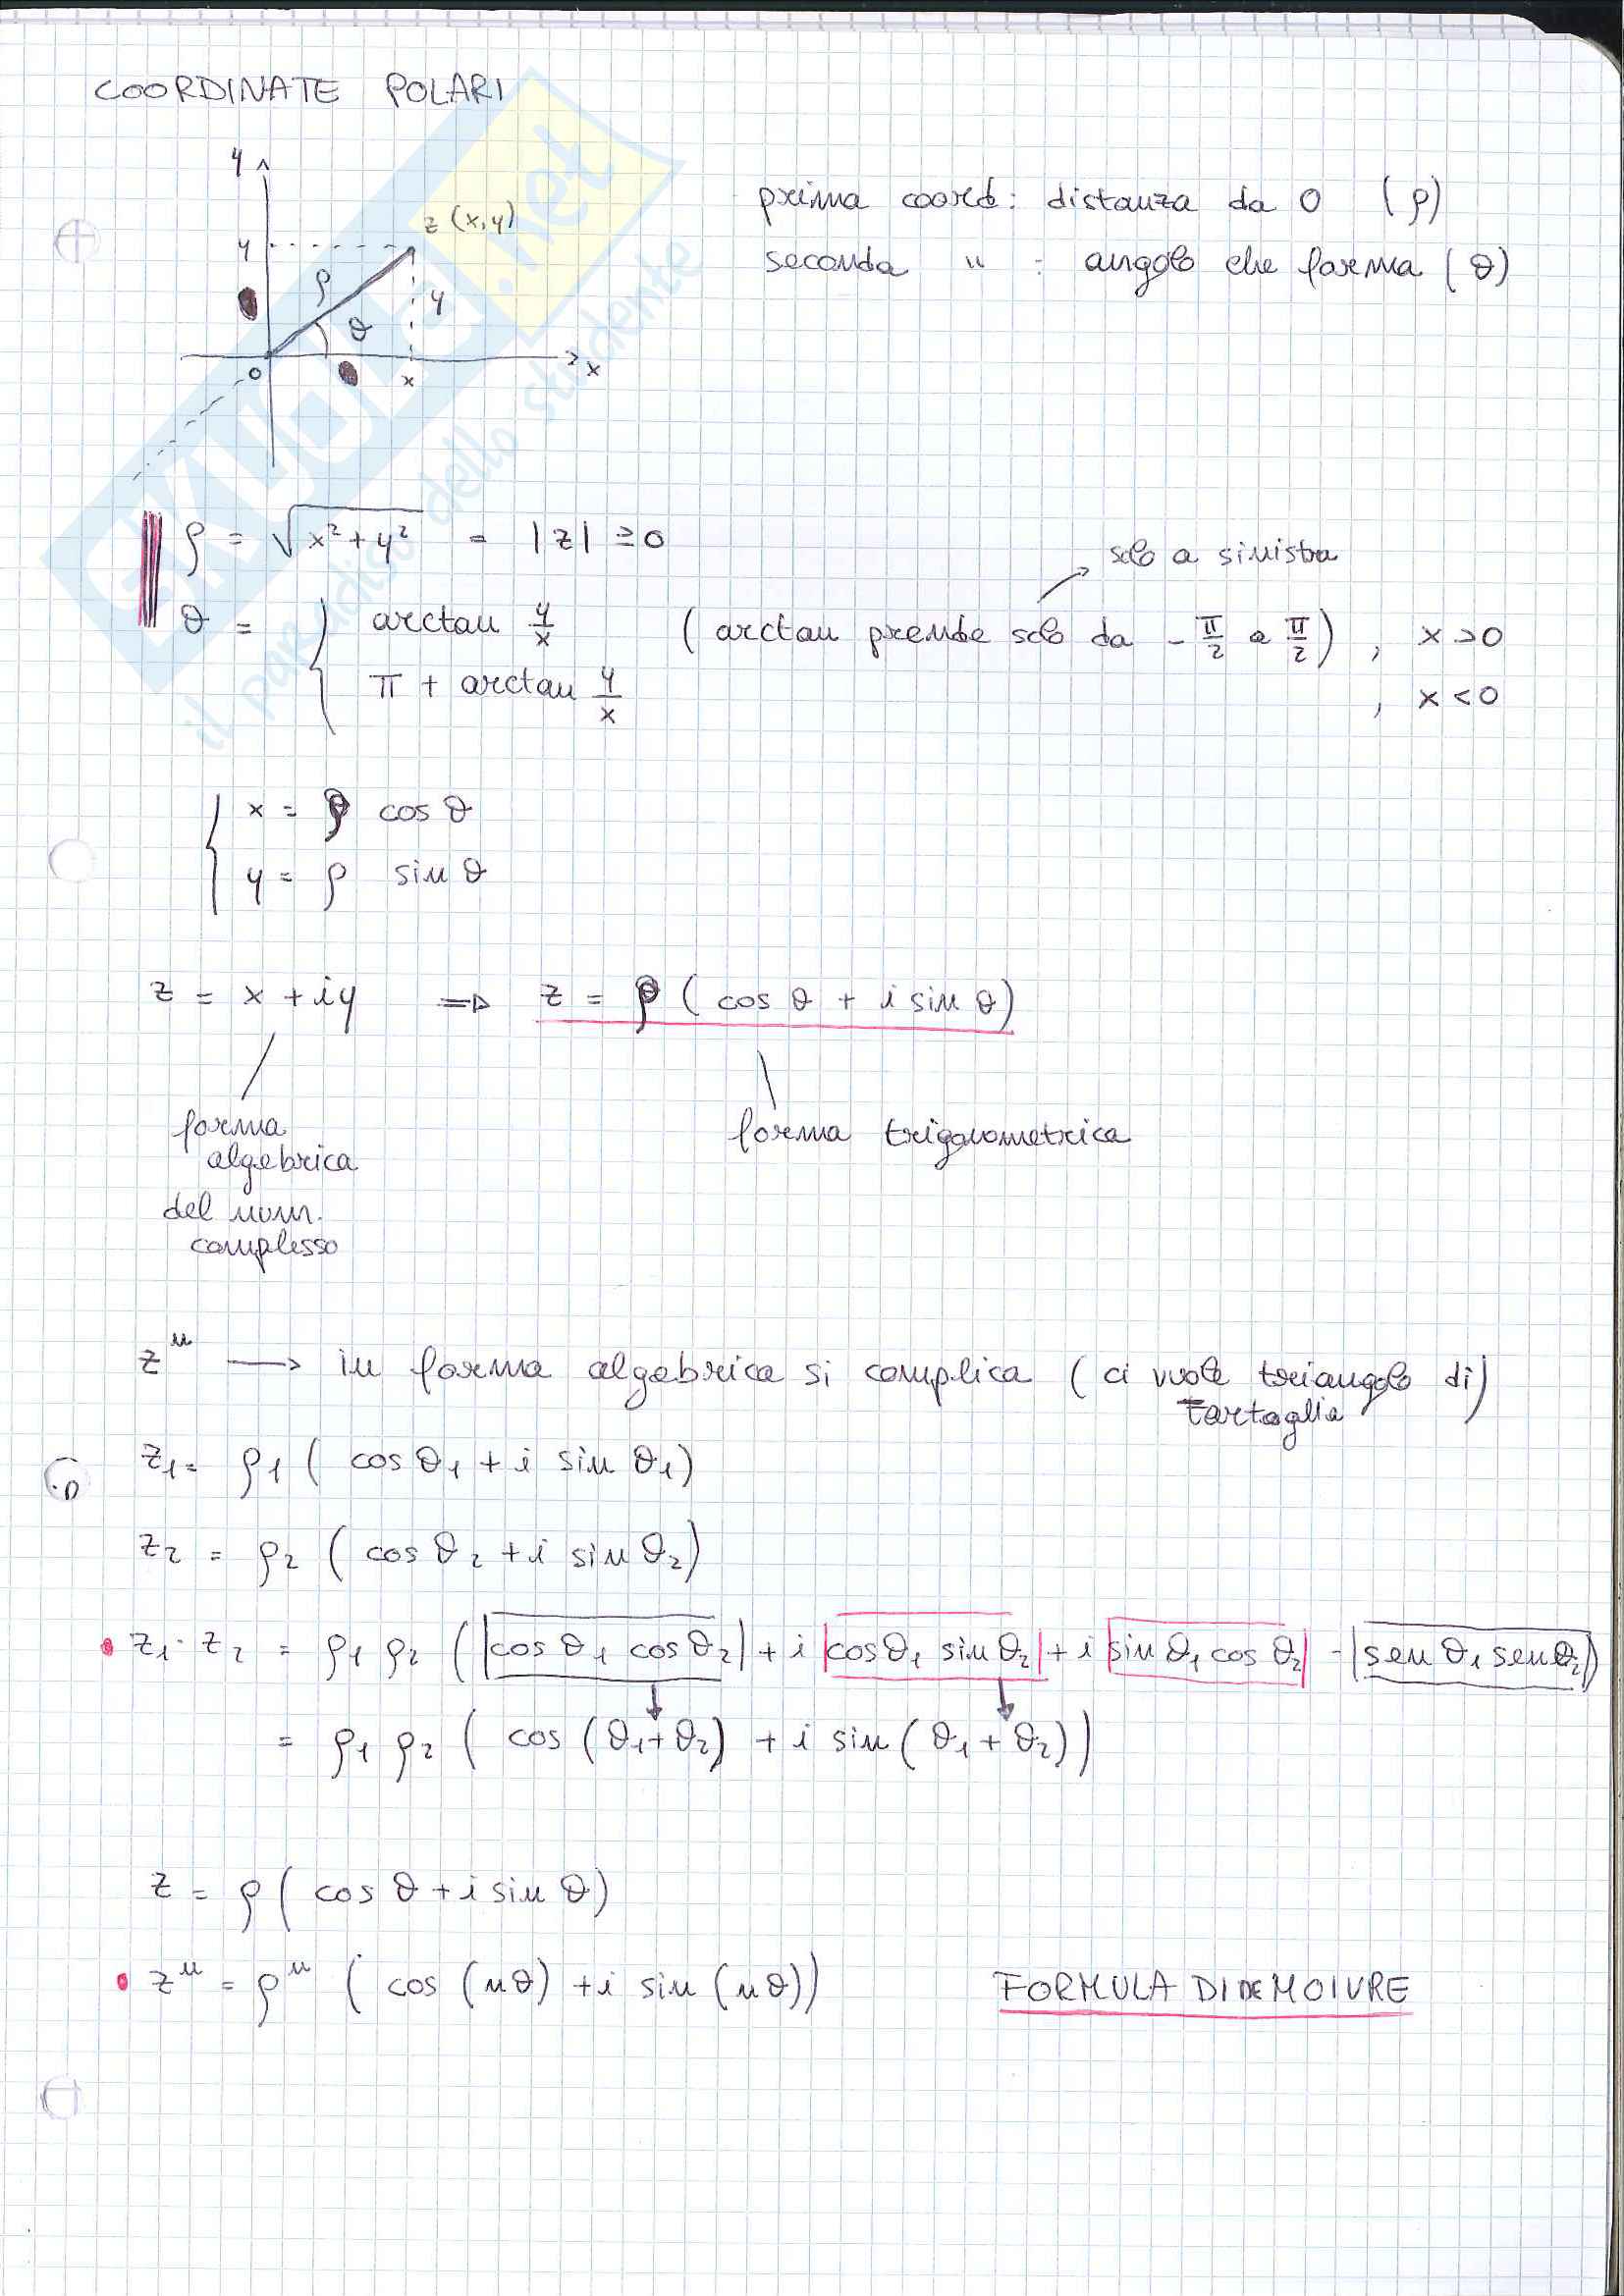 COORDINATE POLARI
y
z (x,y)
y
ρ
ϑ
y
0
x
x
prima coord: distanza da 0 (ρ)
seconda " : angolo che forma (ϑ)
ρ = √x²+y² = |z| ≥0
solo a sinistra
ϑ = { arctan y/x (arctan prende solo da -π/2 a π/2) , x>0
π + arctan y/x , x<0
{ x = ρ cos ϑ
y = ρ sin ϑ
z = x + iy => z = ρ ( cos ϑ + i sin ϑ)
forma
algebrica
del num.
complesso
forma trigonometrica
zⁿ → in forma algebrica si complica ( ci vuole triangolo di)
Tartaglia
z₁= ρ₁ ( cos ϑ₁ + i sin ϑ₁)
z₂ = ρ₂ ( cos ϑ₂ + i sin ϑ₂)
z₁· z₂ = ρ₁ ρ₂ ( cos ϑ₁ cos ϑ₂ + i cosϑ₁ sin ϑ₂ + i sin ϑ₁ cos ϑ₂ - sen ϑ₁ sen ϑ₂)
= ρ₁ ρ₂ ( cos (ϑ₁+ϑ₂) + i sin ( ϑ₁ + ϑ₂))
z = ρ ( cos ϑ + i sin ϑ)
zⁿ = ρⁿ ( cos (nϑ) + i sin (nϑ)) FORMULA DI DE MOIVRE
SKUOLA.net
il paradiso dello studente